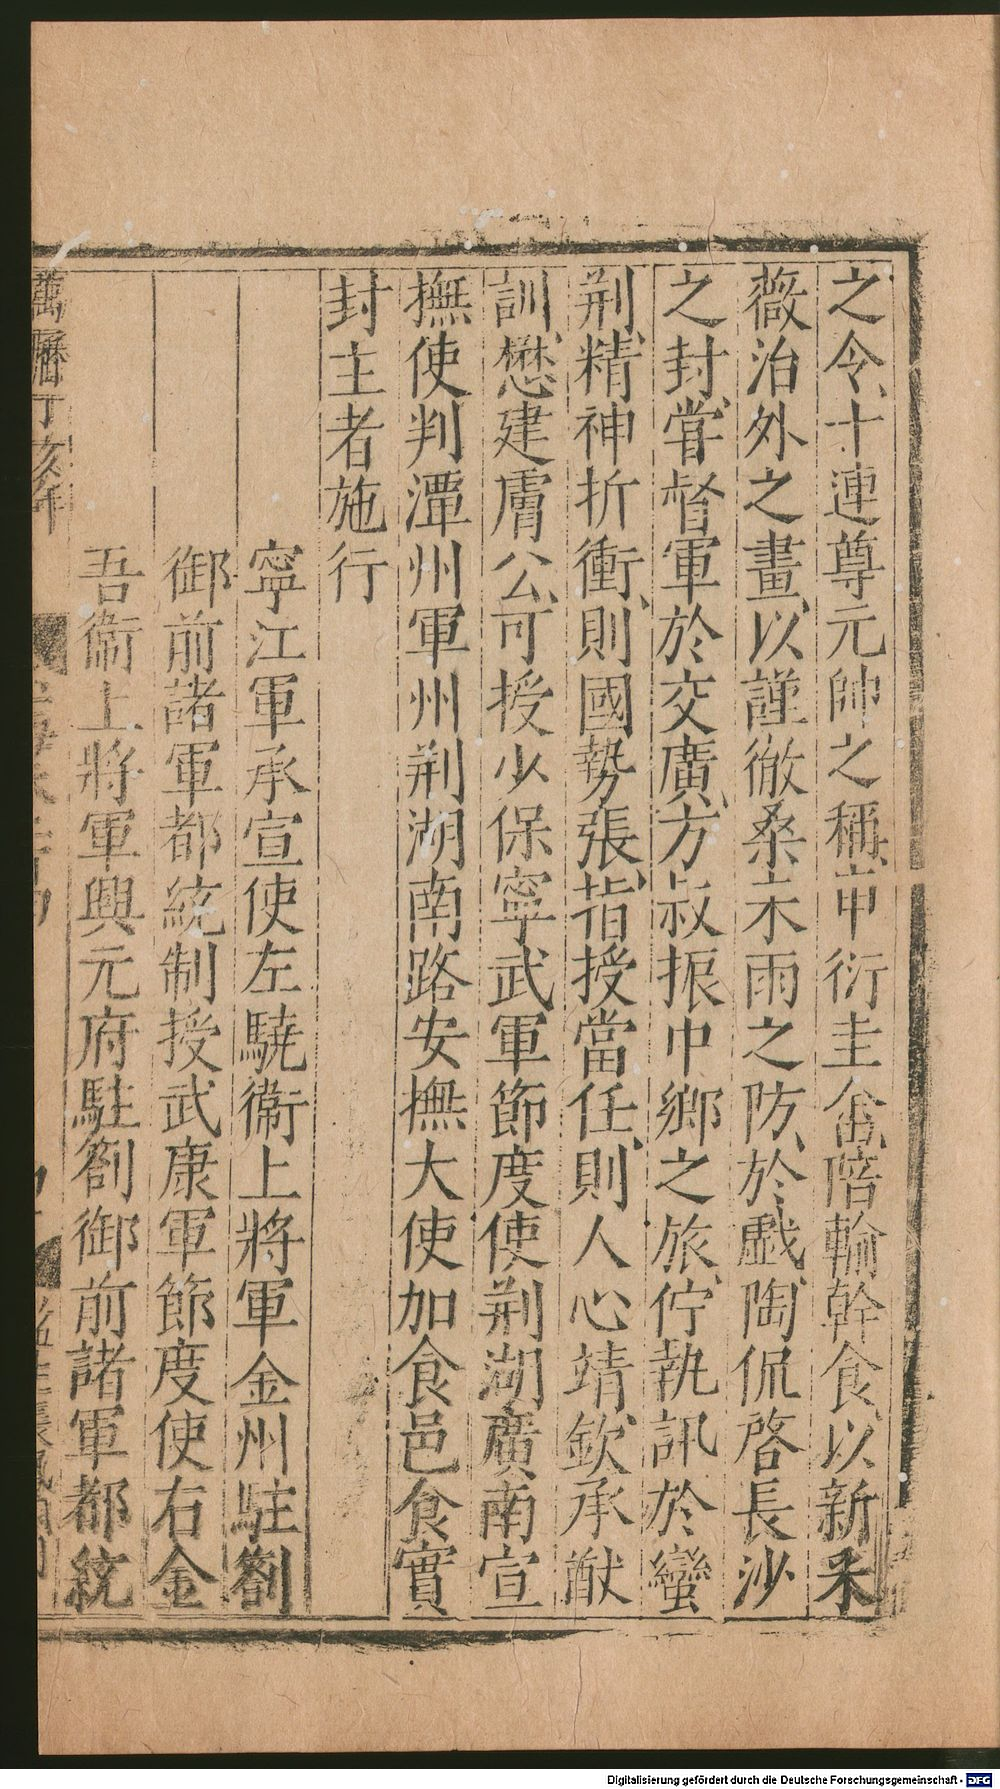 之令十連尊元帥之稱申衍圭畬陪輸幹食以新采
薇治外之畫以謹徹桑未雨之防於戲陶侃啓長沙
之封嘗督軍於交廣方叔振中鄉之旅佇執訊於蠻
荆精神折衝則國勢張指授當任則人心靖欽承猷
訓懋建膚公可授少保寧武軍節度使荆湖廣南宣
撫使判潭州軍州荆湖南路安撫大使加食邑食實
封主者施行
寧江軍承宣使左驍衞上將軍金州駐劄
御前諸軍都統制授武康軍節度使右金
吾衞上將軍興元府駐劄御前諸軍都統
萬曆丁亥年
Digitalisierung gefördert durch die Deutsche Forschungsgemeinschaft - DFG